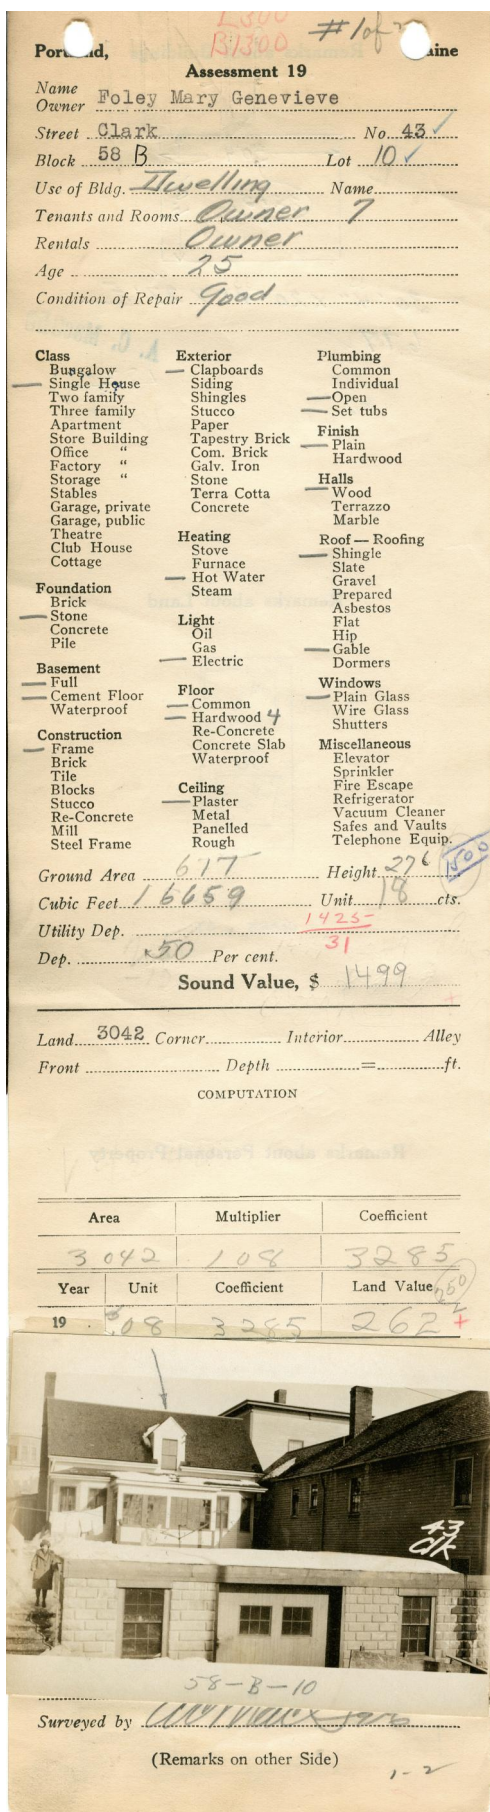 L300
B1300
#1 of 2
Portland, Maine
Assessment 19
Name
Owner Foley Mary Genevieve
Street Clark No. 43 ✓
Block 58 B Lot 10 ✓
Use of Bldg. Dwelling Name
Tenants and Rooms Owner 7
Rentals Owner
Age 25
Condition of Repair Good
Class
Bungalow
Single House
Two family
Three family
Apartment
Store Building
Office "
Factory "
Storage "
Stables
Garage, private
Garage, public
Theatre
Club House
Cottage
Foundation
Brick
Stone
Concrete
Pile
Basement
Full
Cement Floor
Waterproof
Construction
Frame
Brick
Tile
Blocks
Stucco
Re-Concrete
Mill
Steel Frame
Exterior
Clapboards
Siding
Shingles
Stucco
Paper
Tapestry Brick
Com. Brick
Galv. Iron
Stone
Terra Cotta
Concrete
Heating
Stove
Furnace
Hot Water
Steam
Light
Oil
Gas
Electric
Floor
Common
Hardwood 4
Re-Concrete
Concrete Slab
Waterproof
Ceiling
Plaster
Metal
Panelled
Rough
Plumbing
Common
Individual
Open
Set tubs
Finish
Plain
Hardwood
Halls
Wood
Terrazzo
Marble
Roof — Roofing
Shingle
Slate
Gravel
Prepared
Asbestos
Flat
Hip
Gable
Dormers
Windows
Plain Glass
Wire Glass
Shutters
Miscellaneous
Elevator
Sprinkler
Fire Escape
Refrigerator
Vacuum Cleaner
Safes and Vaults
Telephone Equip.
1500
Ground Area 617 Height 27
Cubic Feet 16659 Unit 18 cts.
1425-
Utility Dep. 31
Dep. .50 Per cent.
Sound Value, $ 1499
Land 3042 Corner Interior Alley
Front Depth = ft.
COMPUTATION
Area Multiplier Coefficient
3042 108 3285
Year Unit Coefficient Land Value
250
19 .08 3285 262 +
43
Clk
58-B-10
Surveyed by
(Remarks on other Side)
1-2